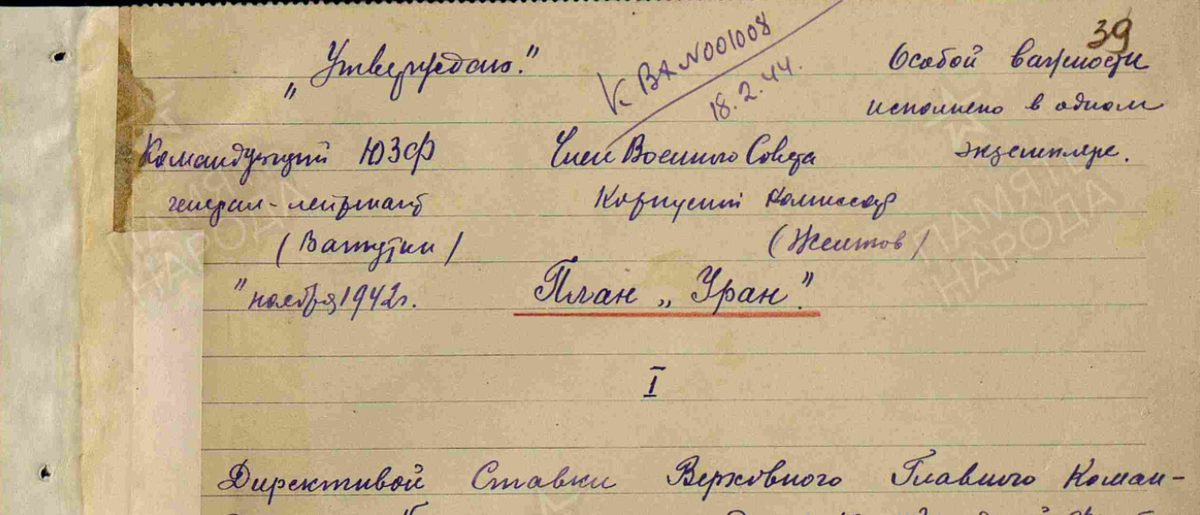 39
„Утверждаю."
К ВХ N001008
18.2.44.
Особой важности
исполнено в одном
экземпляре.
Командующий ЮЗФ
генерал-лейтенант
(Ватутин)
" ноября 1942г.
Член Военного Совета
Корпусной Комиссар
(Желтов)
План „Уран."
I
Директивой Ставки Верховного Главного Коман-
ПАМЯТЬ
НАРОДА
ПАМЯТЬ
НАРОДА